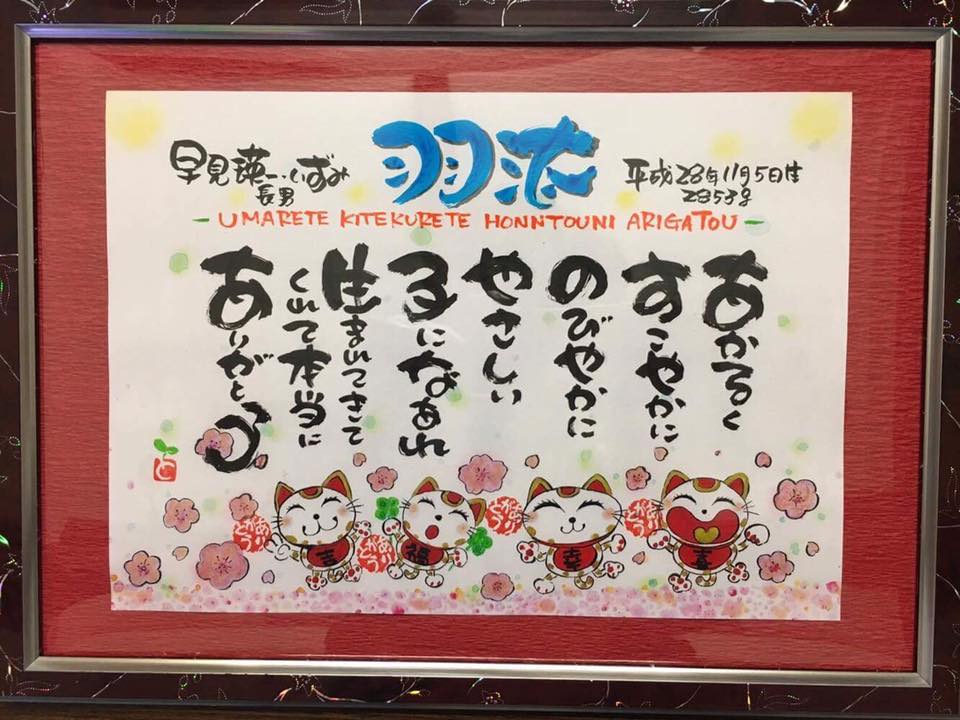 早見瑛一・いずみ
長男
平成28年11月5日生
2853g
UMARETE KITEKURETE HONNTOUNI ARIGATOU
あかるく
すこやかに
のびやかに
やさしい
子になあれ
生まれてきて
くれて本当に
ありがとう
吉
福
幸
喜